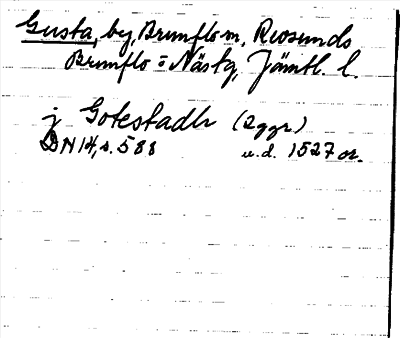 Gusta, by, Brunflo sn, Revsunds
Brunflo o Näsktg, Jämtl. l.
j Gotestadh (2ggr)
DN 14, s. 588 u.d. 1527 or.